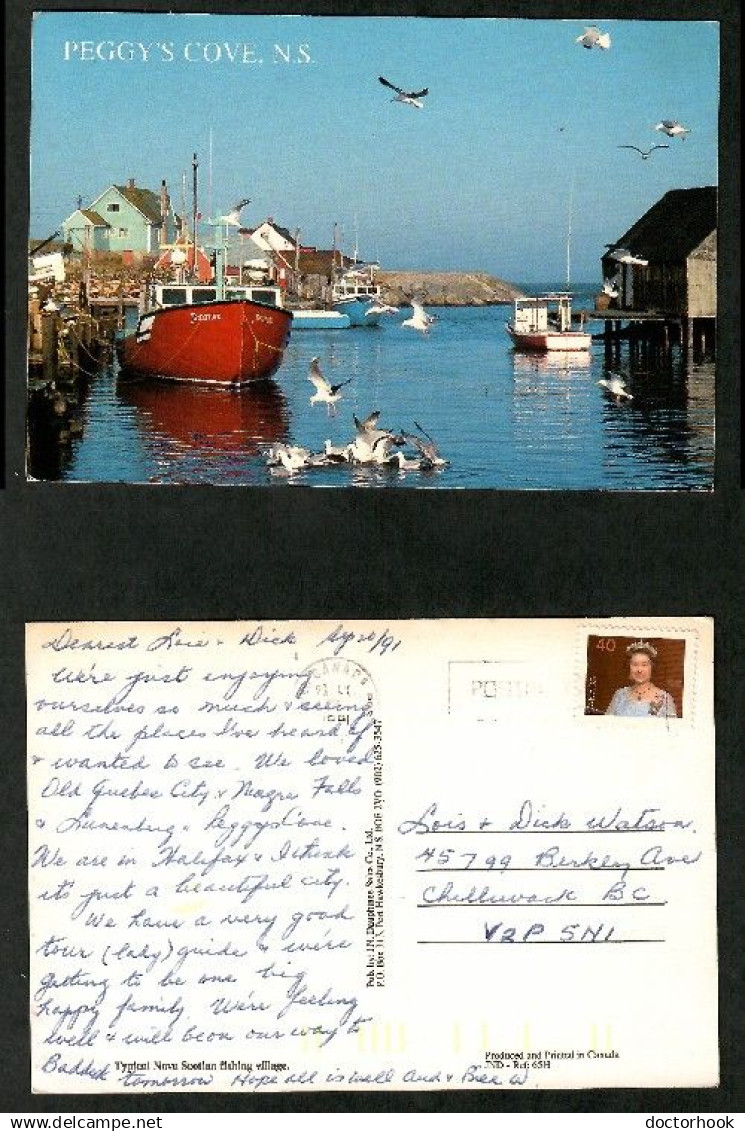 PEGGY'S COVE, N.S.
Dearest Lois + Dick Sep 20/91
We're just enjoying
ourselves so much + seeing
all the places I've heard of
+ wanted to see. We loved
Old Quebec City + Niagra Falls
+ Lunenburg + Peggys Cove.
We are in Halifax + I think
it's just a beautiful city.
We have a very good
tour (lady) guide + we're
getting to be one big
happy family. We're feeling
well + will be on our way to
Baddek tomorrow Hope all is well and + Bill W.
Typical Nova Scotian fishing village.
CANADA
1991
Pub. by: J.N. Dauphinee Sales Co., Ltd.
P.O. Box 313, Port Hawkesbury, N.S. B0E 2V0 (902) 625-3547
40
Lois + Dick Watson
45799 Berkley Ave
Chilliwack BC
V2P 5N1
Produced and Printed in Canada
IND - Ref: 65H
www.doctorhook.com